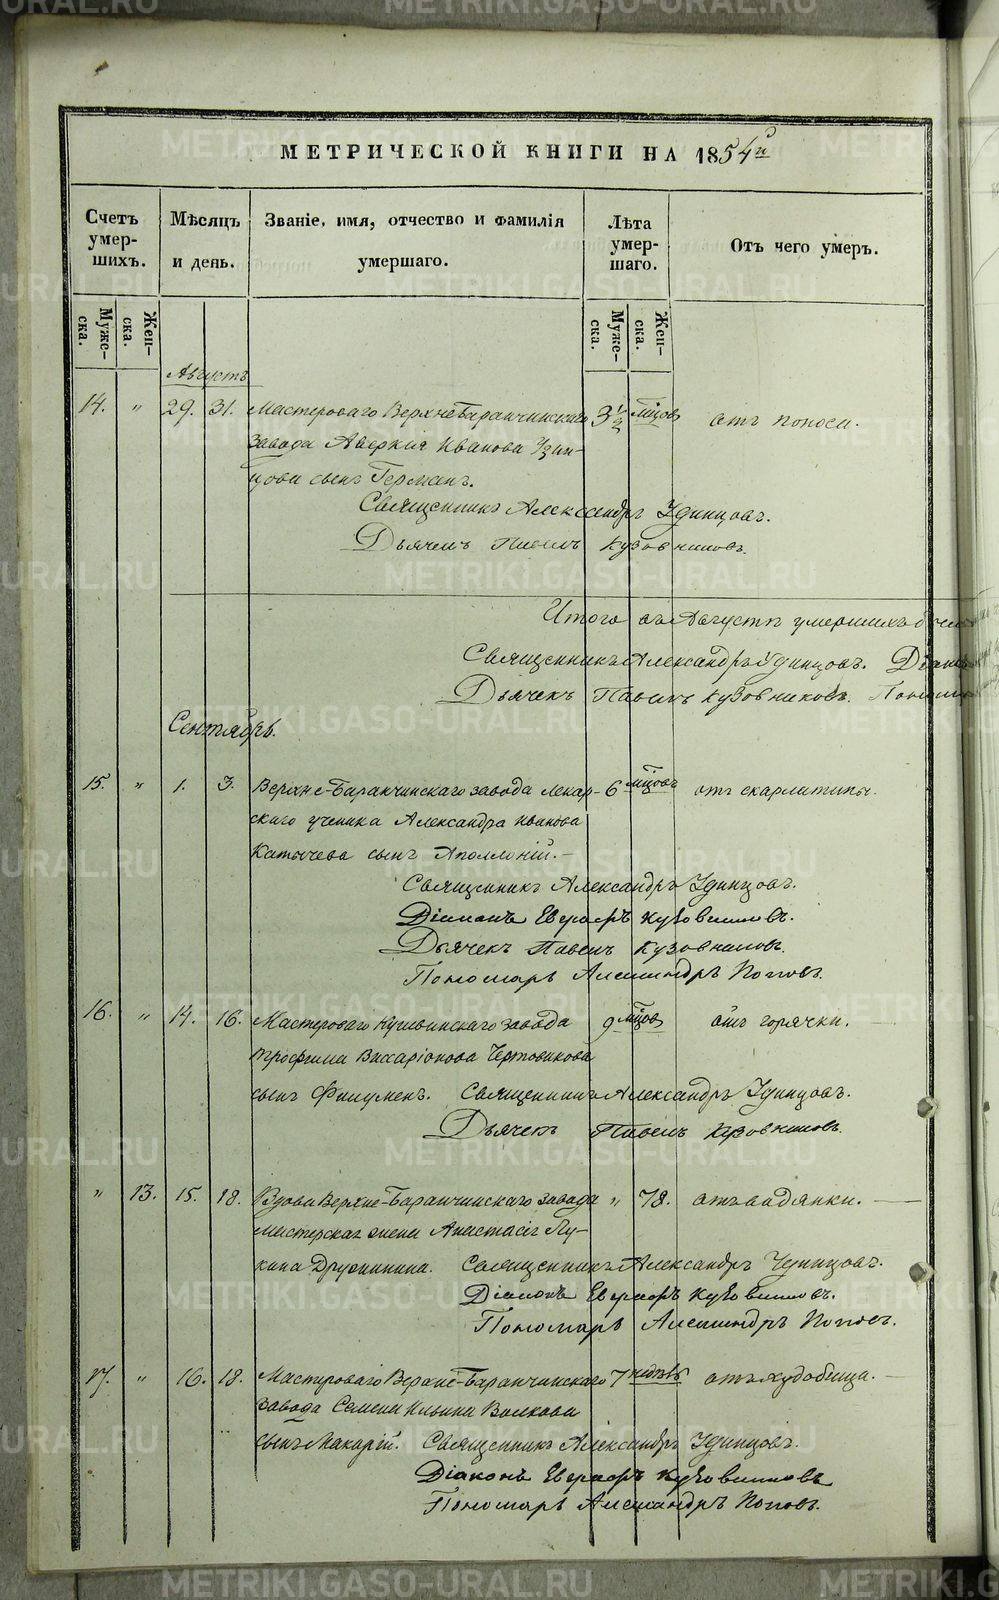 МЕТРИЧЕСКОЙ КНИГИ НА 1854й
Счетъ умер-шихъ.
Мѣсяцъ и день.
Званіе, имя, отчество и фамилія умершаго.
Лѣта умер-шаго.
Отъ чего умеръ.
Муже-ска.
Жен-ска.
Муже-ска.
Жен-ска.
Августъ
14. " 29. 31. Мастероваго Верхнебаранчинскаго 3½ мѣсцов отъ поноса.
завода Аверкія Иванова Удин-
цова сынъ Германъ.
Священникъ Александръ Удинцовъ.
Дьячекъ Павелъ Кузовниковъ.
Итого въ Августѣ умершихъ
Священникъ Александръ Удинцовъ. Діакон
Дьячекъ Павелъ Кузовниковъ. Пономар
Сентябрь.
15. " 1. 3. Верхне-Баранчинскаго завода лекар- 6 мѣсцовъ отъ скарлатины.
скаго ученика Александра Иванова
Катычева сынъ Аполлоній.-
Священникъ Александръ Удинцовъ.
Діаконъ Евграфъ Кузовниковъ.
Дьячекъ Павелъ Кузовниковъ.
Пономарь Александръ Поповъ.
16. " 14. 16. Мастероваго Кушвинскаго завода 9 мѣсцов отъ горячки.
Трофима Виссаріонова Чертовикова
сынъ Филуменъ. Священникъ Александръ Удинцовъ.
Дьячекъ Павелъ Кузовниковъ.
" 13. 15. 18. Вдова Верхне-Баранчинскаго завода " 78. отъ водянки.
мастерская жена Анастасія Лу-
кина Дружинина. Священникъ Александръ Удинцовъ.
Діаконъ Евграфъ Кузовниковъ.
Пономарь Александръ Поповъ.
17. " 16. 18. Мастероваго Верхне-Баранчинскаго 7 недѣль отъ худобища.
завода Семена Ильина Волкова
сынъ Макарій. Священникъ Александръ Удинцовъ.
Діаконъ Евграфъ Кузовниковъ
Пономарь Александръ Поповъ.
METRIKI.GASO-URAL.RU